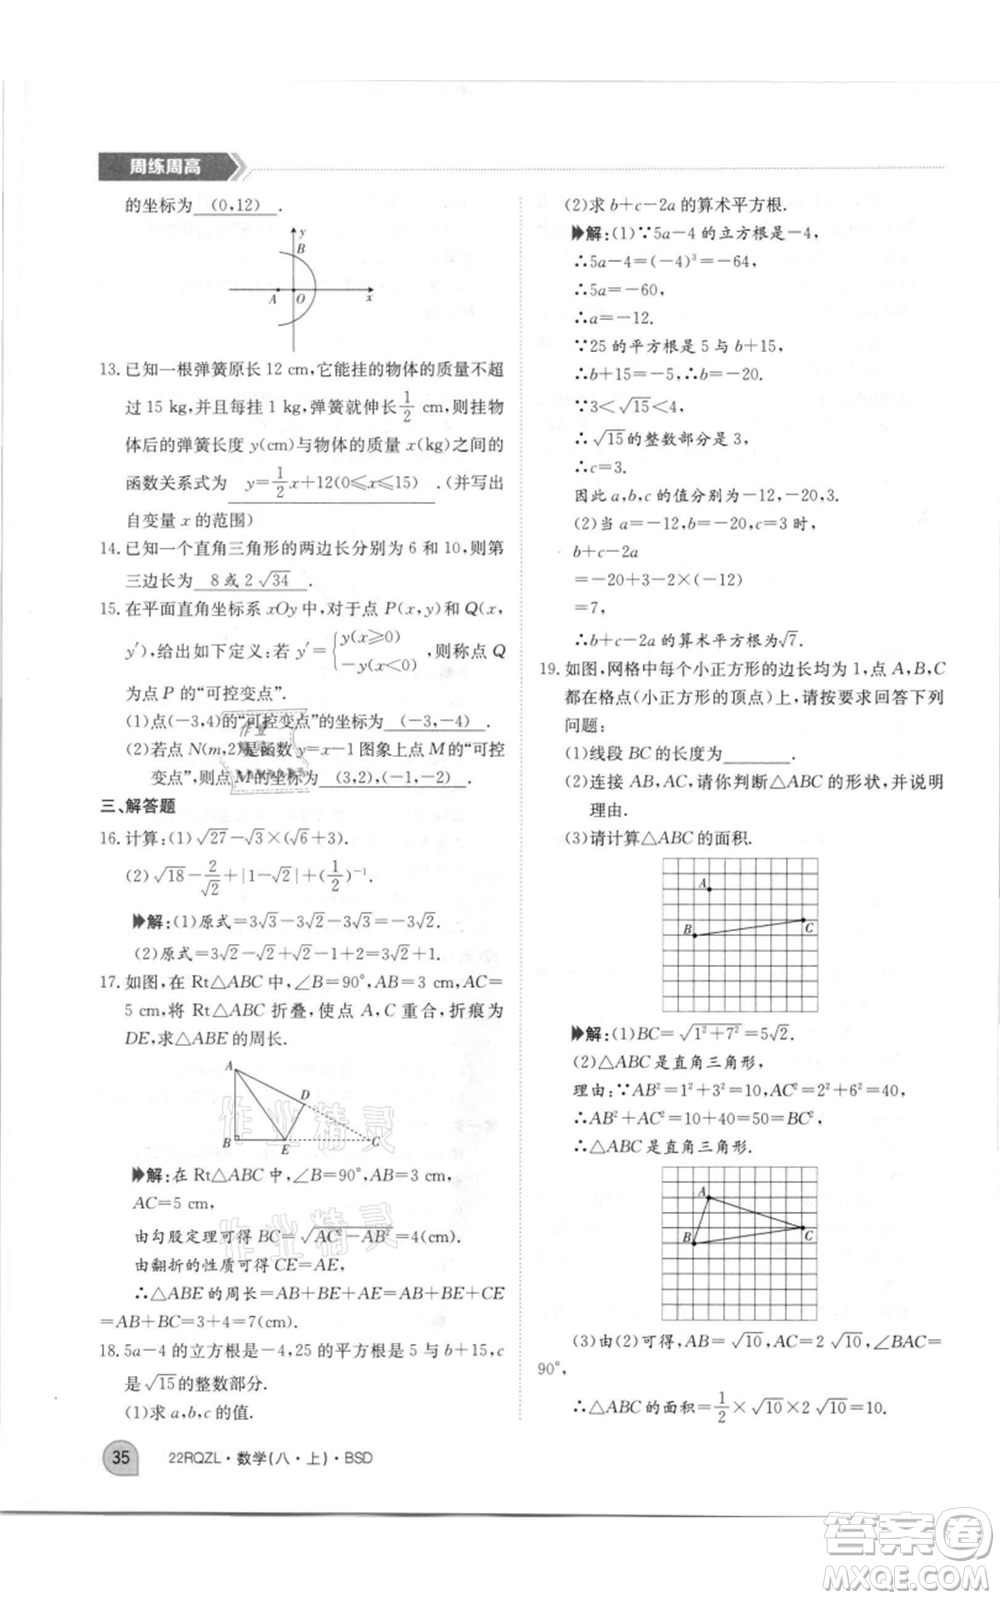 周练周高
的坐标为 (0,12) .
y
B
A
O
x
13. 已知一根弹簧原长 12 cm,它能挂的物体的质量不超
过 15 kg,并且每挂 1 kg,弹簧就伸长 1/2 cm,则挂物
体后的弹簧长度 y(cm)与物体的质量 x(kg)之间的
函数关系式为 y=1/2x+12(0≤x≤15) .(并写出
自变量 x 的范围)
14. 已知一个直角三角形的两边长分别为 6 和 10,则第
三边长为 8 或 2√34 .
15. 在平面直角坐标系 xOy 中,对于点 P(x,y)和 Q(x,
y′),给出如下定义:若 y′={y(x≥0) −y(x<0) ,则称点 Q
为点 P 的“可控变点”.
(1)点(−3,4)的“可控变点”的坐标为 (−3,−4) .
(2)若点 N(m,2)是函数 y=x−1 图象上点 M 的“可控
变点”,则点 M 的坐标为 (3,2),(−1,−2) .
三、解答题
16. 计算:(1)√27−√3×(√6+3).
(2)√18−2/√2+|1−√2|+(1/2)⁻¹.
解:(1)原式=3√3−3√2−3√3=−3√2.
(2)原式=3√2−√2+√2−1+2=3√2+1.
17. 如图,在 Rt△ABC 中,∠B=90°,AB=3 cm,AC=
5 cm,将 Rt△ABC 折叠,使点 A,C 重合,折痕为
DE,求△ABE 的周长.
A
D
B
E
C
解:在 Rt△ABC 中,∠B=90°,AB=3 cm,
AC=5 cm,
由勾股定理可得 BC=√AC²−AB²=4(cm).
由翻折的性质可得 CE=AE,
∴△ABE 的周长=AB+BE+AE=AB+BE+CE
=AB+BC=3+4=7(cm).
18. 5a−4 的立方根是−4,25 的平方根是 5 与 b+15,c
是√15的整数部分.
(1)求 a,b,c 的值.
(2)求 b+c−2a 的算术平方根.
解:(1)∵5a−4 的立方根是−4,
∴5a−4=(−4)³=−64,
∴5a=−60,
∴a=−12.
∵25 的平方根是 5 与 b+15,
∴b+15=−5,∴b=−20.
∵3<√15<4,
∴√15的整数部分是 3,
∴c=3.
因此 a,b,c 的值分别为−12,−20,3.
(2)当 a=−12,b=−20,c=3 时,
b+c−2a
=−20+3−2×(−12)
=7,
∴b+c−2a 的算术平方根为√7.
19. 如图,网格中每个小正方形的边长均为 1,点 A,B,C
都在格点(小正方形的顶点)上,请按要求回答下列
问题:
(1)线段 BC 的长度为________.
(2)连接 AB,AC,请你判断△ABC 的形状,并说明
理由.
(3)请计算△ABC 的面积.
A
B
C
解:(1)BC=√1²+7²=5√2.
(2)△ABC 是直角三角形,
理由:∵AB²=1²+3²=10,AC²=2²+6²=40,
∴AB²+AC²=10+40=50=BC²,
∴△ABC 是直角三角形.
A
B
C
(3)由(2)可得,AB=√10,AC=2√10,∠BAC=
90°,
∴△ABC 的面积=1/2×√10×2√10=10.
35
22RQZL·数学(八·上)·BSD
作业精灵
作业精灵
答案卷
MXQE.COM